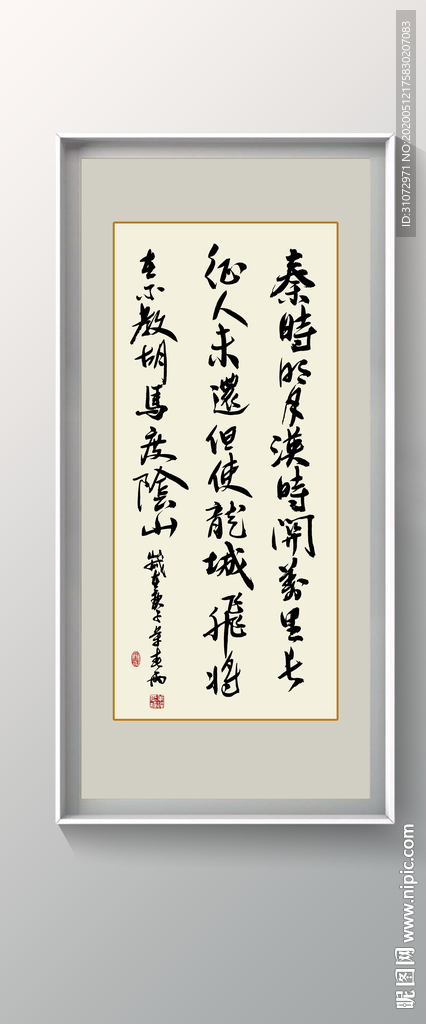 秦時明月漢時關萬里長
征人未還但使龍城飛將
在不教胡馬度陰山
歲在庚子年春雨
ID:31072971 NO:20200512175830207083
昵图网 www.nipic.com